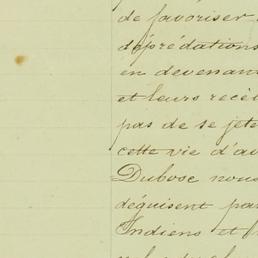 de favoriser
déprédations
en devenan
et leurs recé
pas de se jete
cette vie d'av
Dubosc nou
déguisent pa
Indiens et